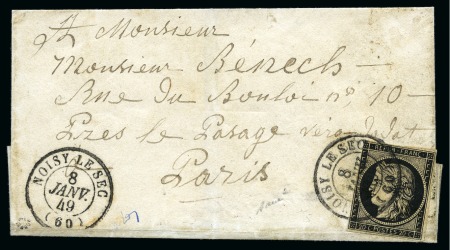 A Monsieur
Monsieur Bénech
Rue du Bouloi nº 10
Pres le Passage
Paris
NOISY-LE-SEC
8
JANV.
49
(60)
NOISY-LE-SEC
8
(60)
REPUB. FRANC.
20 C POSTES 20 C